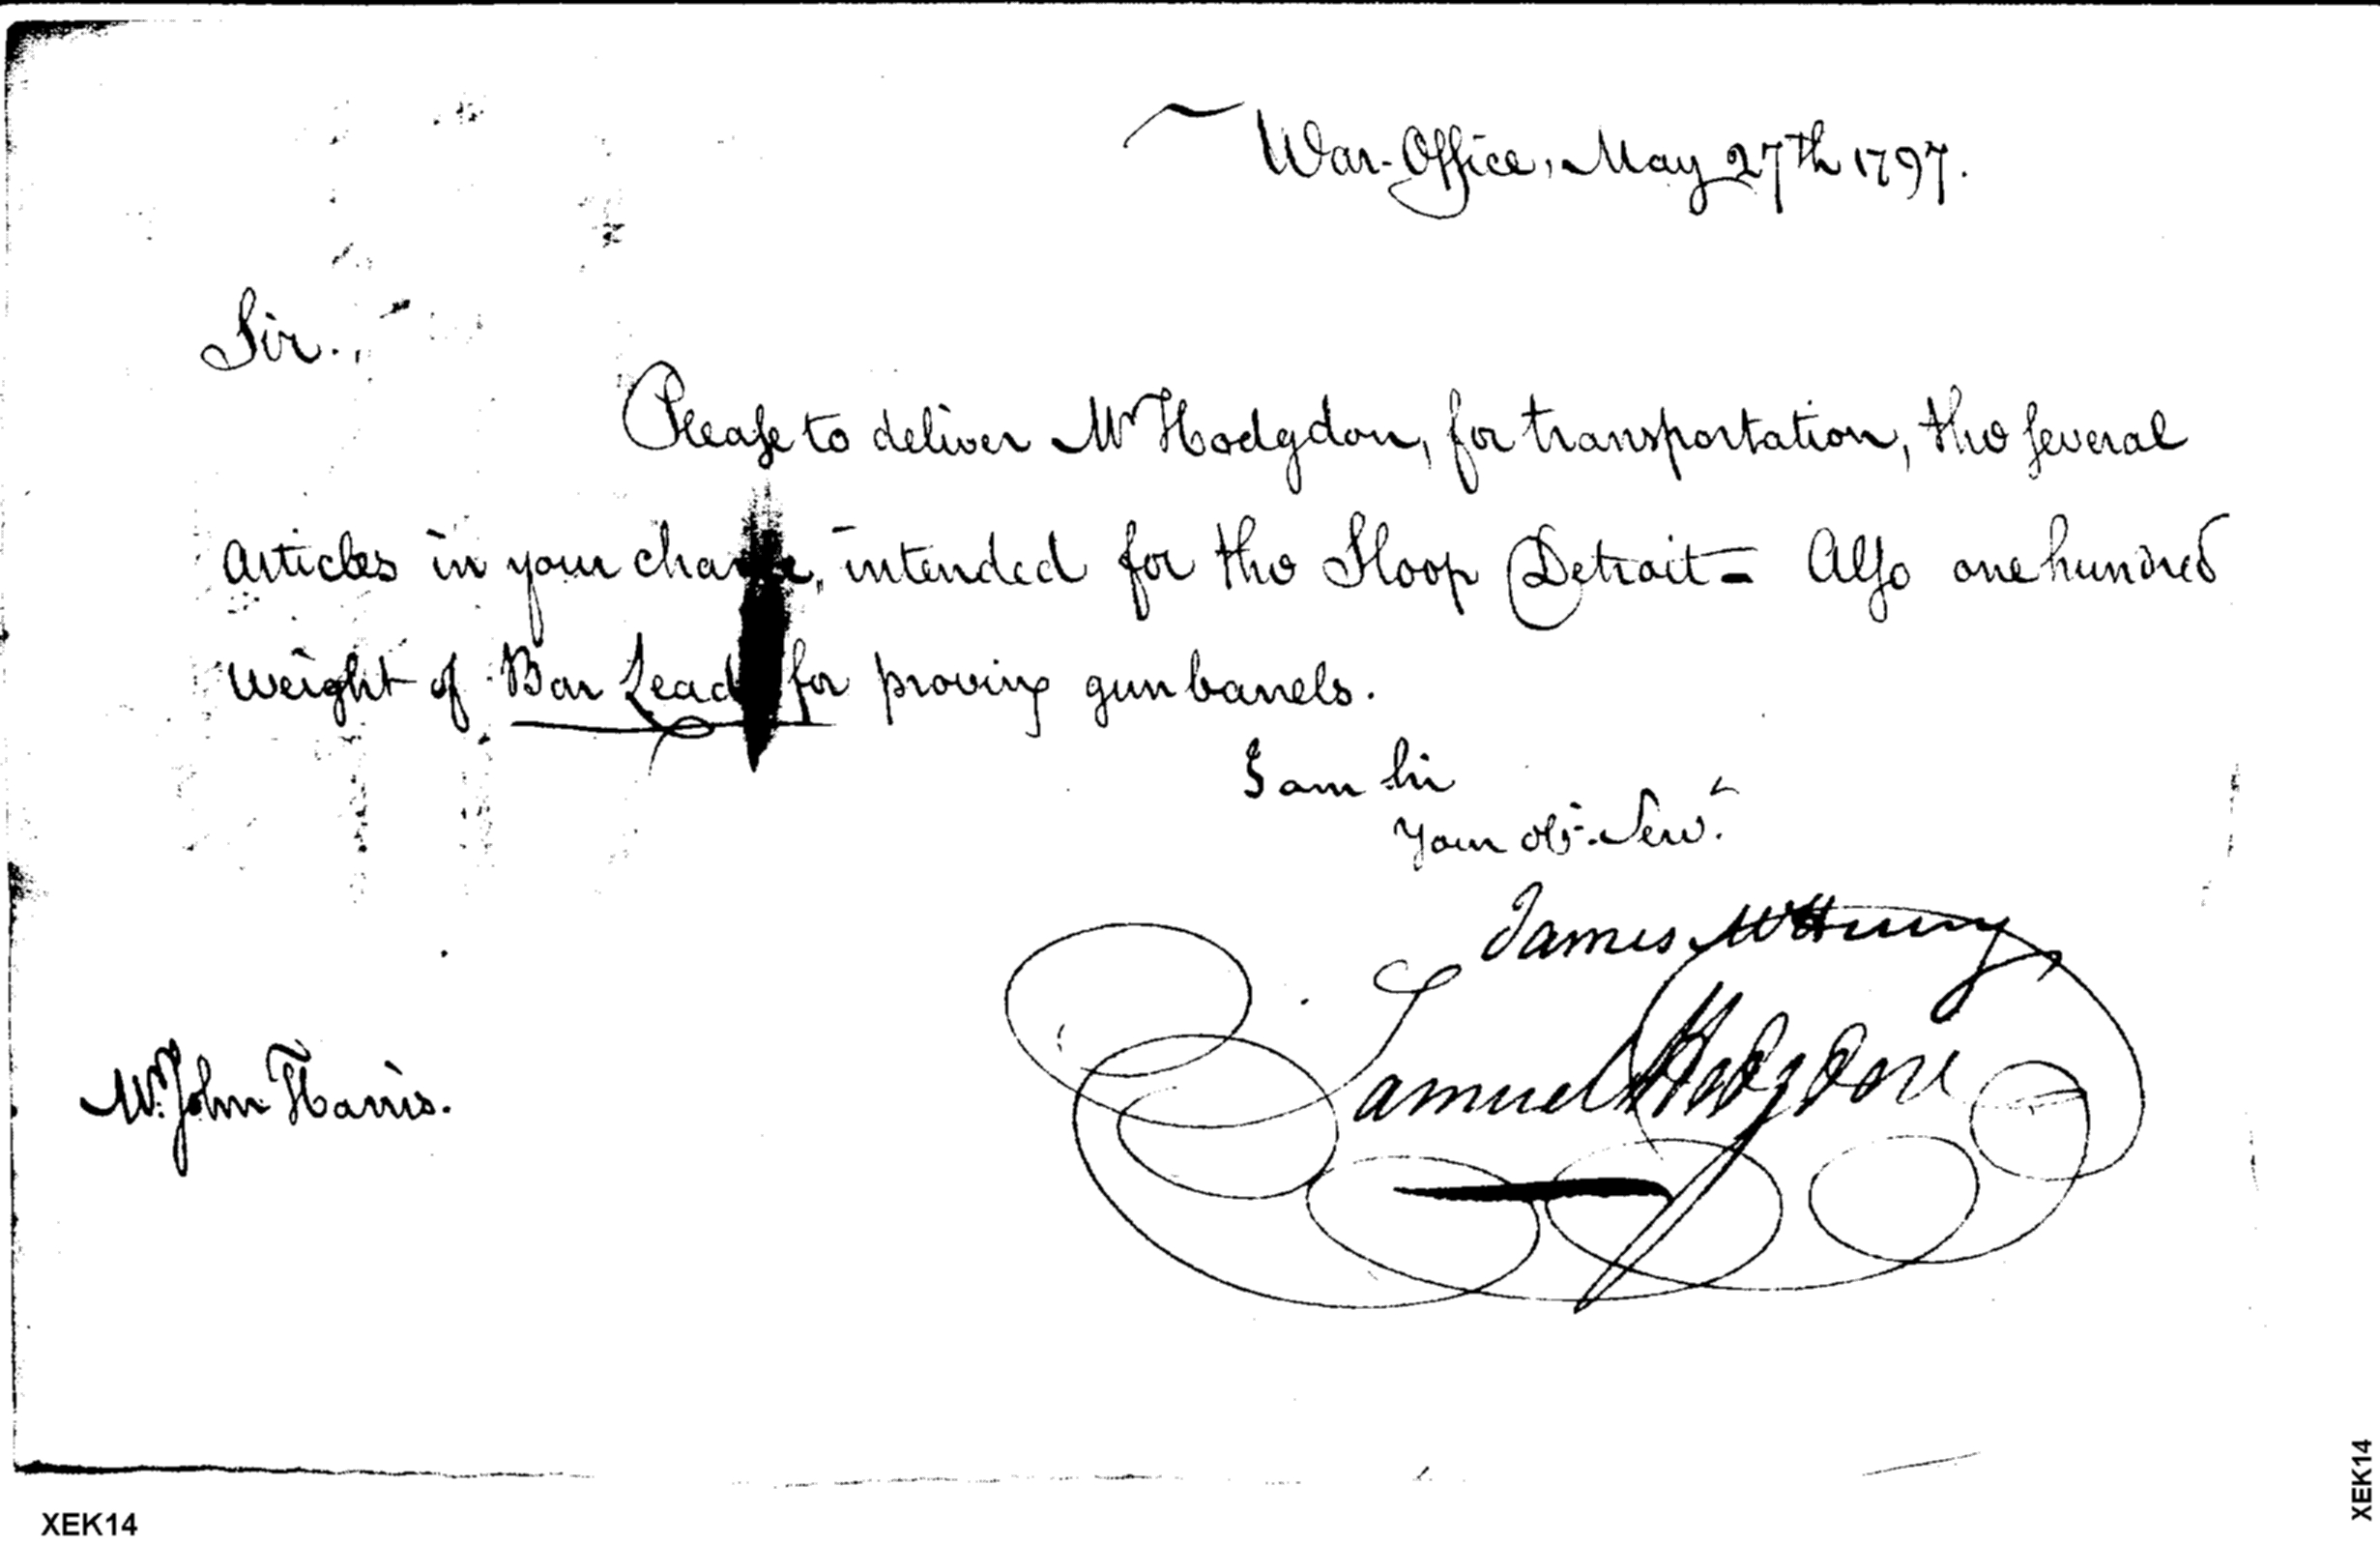 War-Office, May 27th 1797.
Sir.,
Pleaſe to deliver Mr Hodgdon, for transportation, the ſeveral
Articles in your charge, intended for the Sloop Detroit = Alſo one hundred
weight of Bar Lead for proving gun barrels.
I am Sir
Your obt. Servt.
James McHenry
Samuel Hodgdon
Mr. John Harris.
XEK14
XEK14